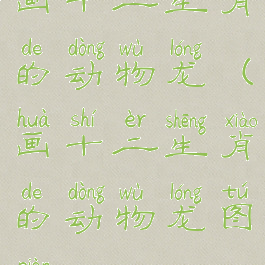 画十二生肖
de dòng wù lóng
的动物龙（
huà shí èr shēng xiào
画十二生肖
de dòng wù lóng tú
的动物龙图